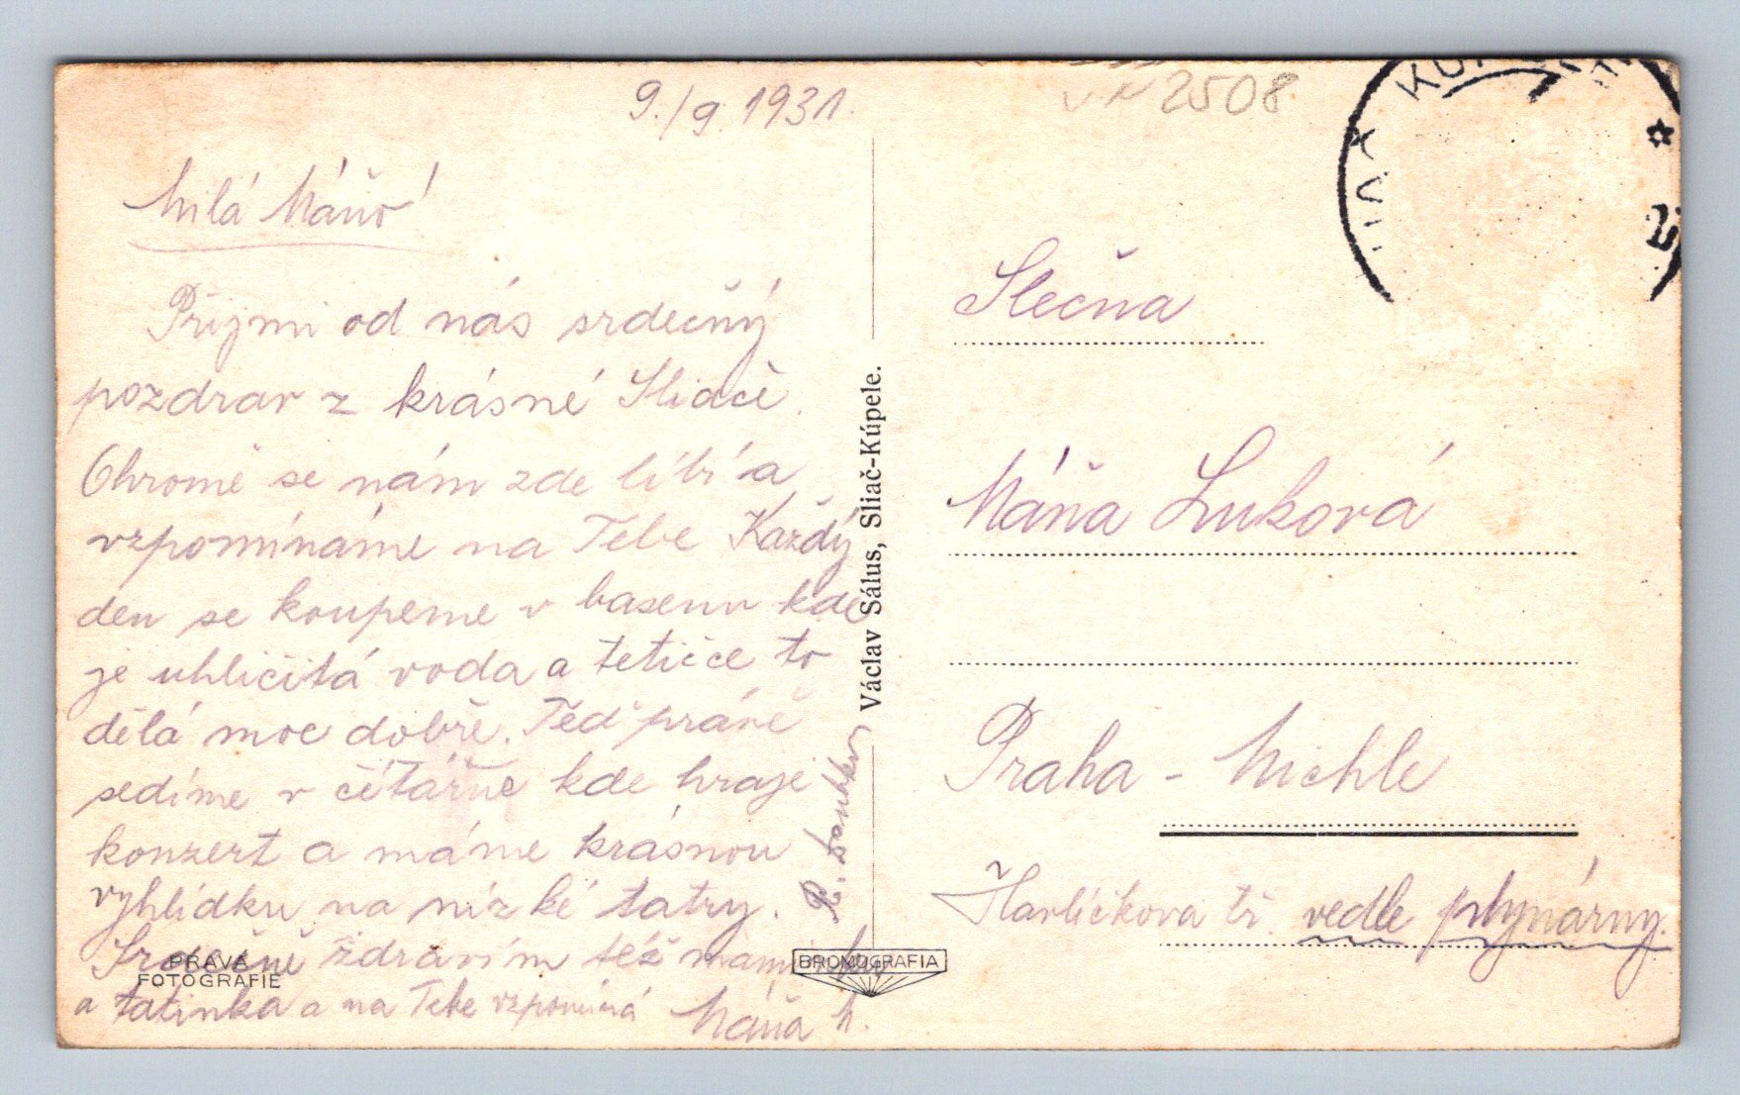 9./9. 1931.
Milá Máňo!
Přijmi od nás srdečný
pozdrav z krásné Sliače.
Ohromě se nám zde líbí a
vzpomínáme na Tebe Každý
den se koupeme v basenu kde
je uhličitá voda a tetičce to
dělá moc dobře. Teď právě
sedíme v čítárně kde hraje
konzert a máme krásnou
vyhlídku na nízké tatry.
Srdečně zdravím též maminku
a tatínka a na Tebe vzpomíná Máňa
PRAVÁ
FOTOGRAFIE
Václav Sálus, Sliač-Kúpele.
BROMOGRAFIA
2508
Slečna
Máňa Luková
Praha - Michle
Havlíčkova tř. vedle plynárny.